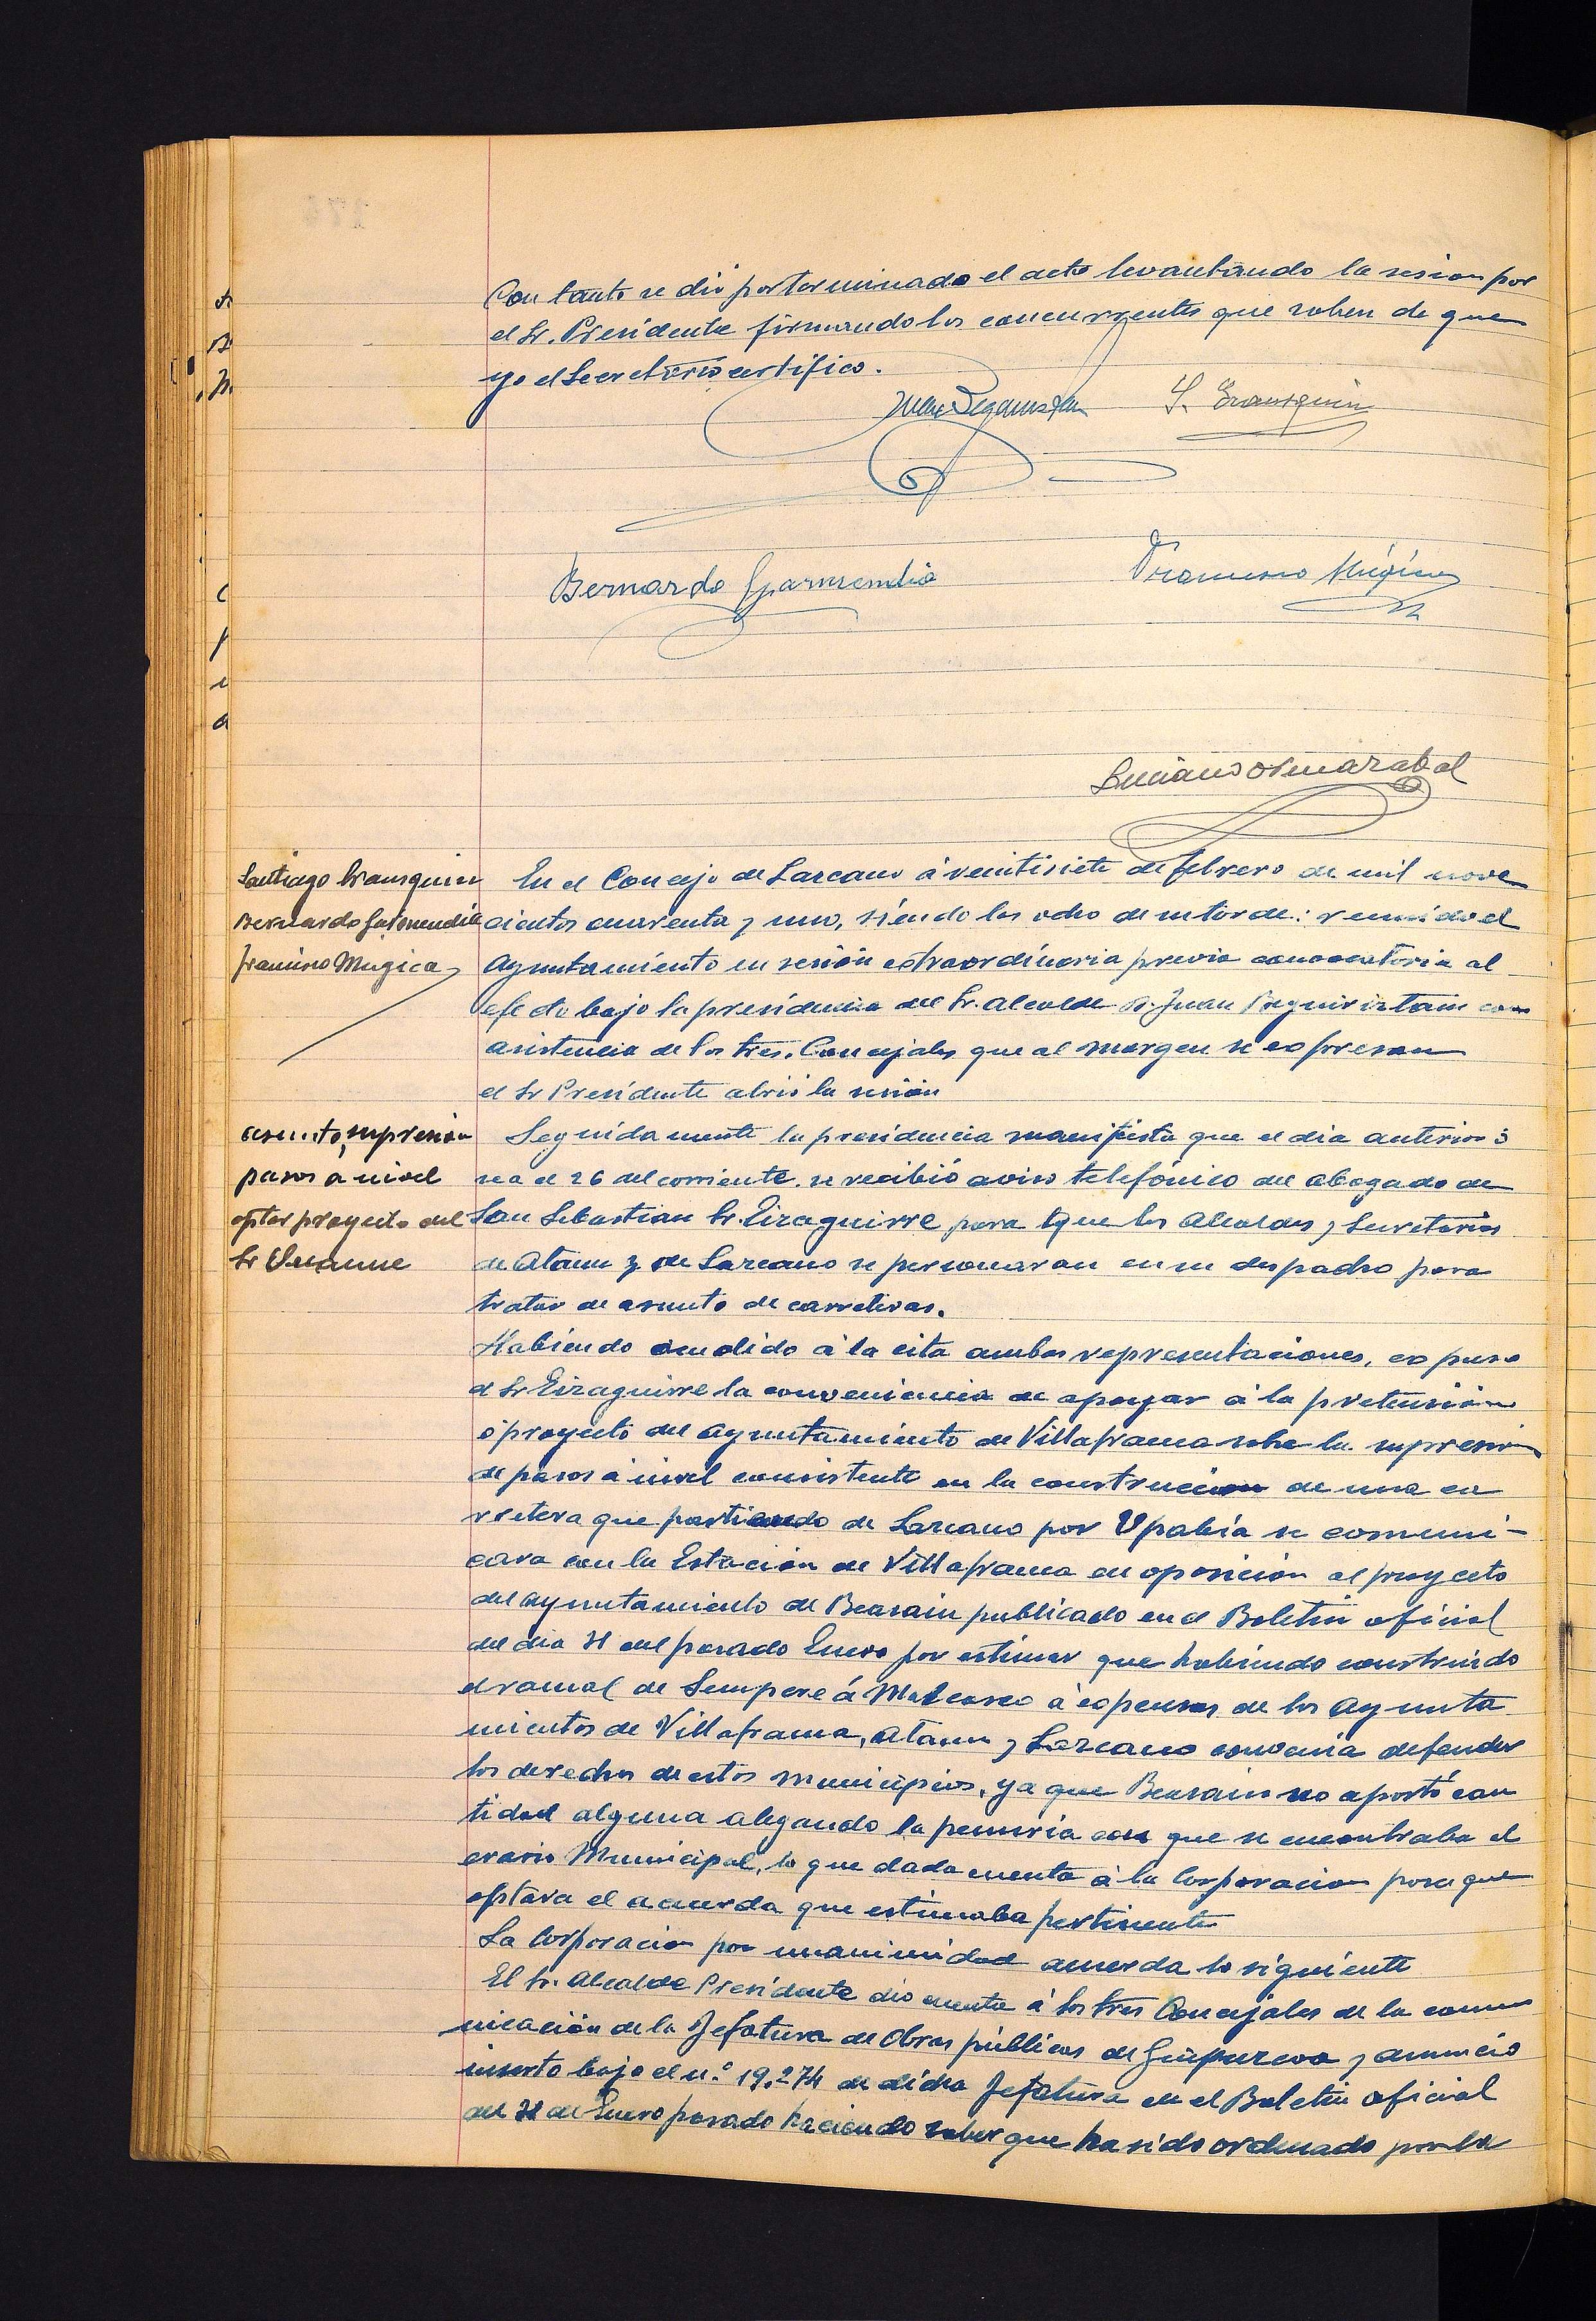 Con tanto se dió por terminado el acto levantando la sesion por
el Sr. Presidente firmando los concurrentes que saben de que
yo el Secretario certifico.
S. Irausquin
Bernardo Garmendia
Francisco Mugica
Luciano
Santiago Irausquin
Bernardo Garmendia
Francisco Mugica
En el Concejo de Lazcano á veintisiete de febrero de mil nove
cientos cuarenta y uno, siendo las ocho de su tarde: reunido el
Ayuntamiento en sesión extraordinaria previa convocatoria al
efecto bajo la presidencia del Sr. Alcalde D. Juan Beguiristain con
asistencia de los tres. Concejales que al margen se expresan
el Sr Presidente abrió la sesión
asunto, supresión
pasos a nivel
optar proyecto del
Sr
Seguidamente la presidencia manifiesta que el dia anterior ó
sea el 26 del corriente. se recibió aviso telefónico del abogado de
San Sebastian Sr. Eizaguirre para que los Alcaldes y Secretarios
de Ataun y de Lazcano se personaran en su despacho para
tratar de asunto de carreteras.
Habiendo acudido á la cita ambas representaciones, expuso
el Sr Eizaguirre la conveniencia de apoyar á la pretensión
ó proyecto del Ayuntamiento de Villafranca sobre la supresión
de pasos á nivel consistente en la construccion de una ca
rretera que partiendo de Lazcano por Upabia se comuni-
cara con la Estación de Villafranca en oposición al proyecto
del Ayuntamiento de Beasain publicado en el Boletín oficial
del dia 31 del pasado Enero por estimar que habiendo construido
el ramal de Sempere á á expensas de los Ayunta
mientos de Villafranca, Ataun y Lazcano convenia defender
los derechos de estos municipios, ya que Beasain no aportó can
tidad alguna alegando la penuria con que se encontraba el
erario Municipal, lo que dada cuenta á la Corporacion para que
optara el acuerda que estimaba pertinente
La Corporacion por unanimidad acuerda lo siguiente
El Sr. Alcalde Presidente dió cuenta á los tres Concejales de la comu
nicación de la Jefatura de Obras públicas de Guipuzcoa y anuncio
inserto bajo el n.º 19.274 de dicha Jefatura en el Boletin oficial
del 31 de Enero pasado haciendo saber que ha sido ordenado por la